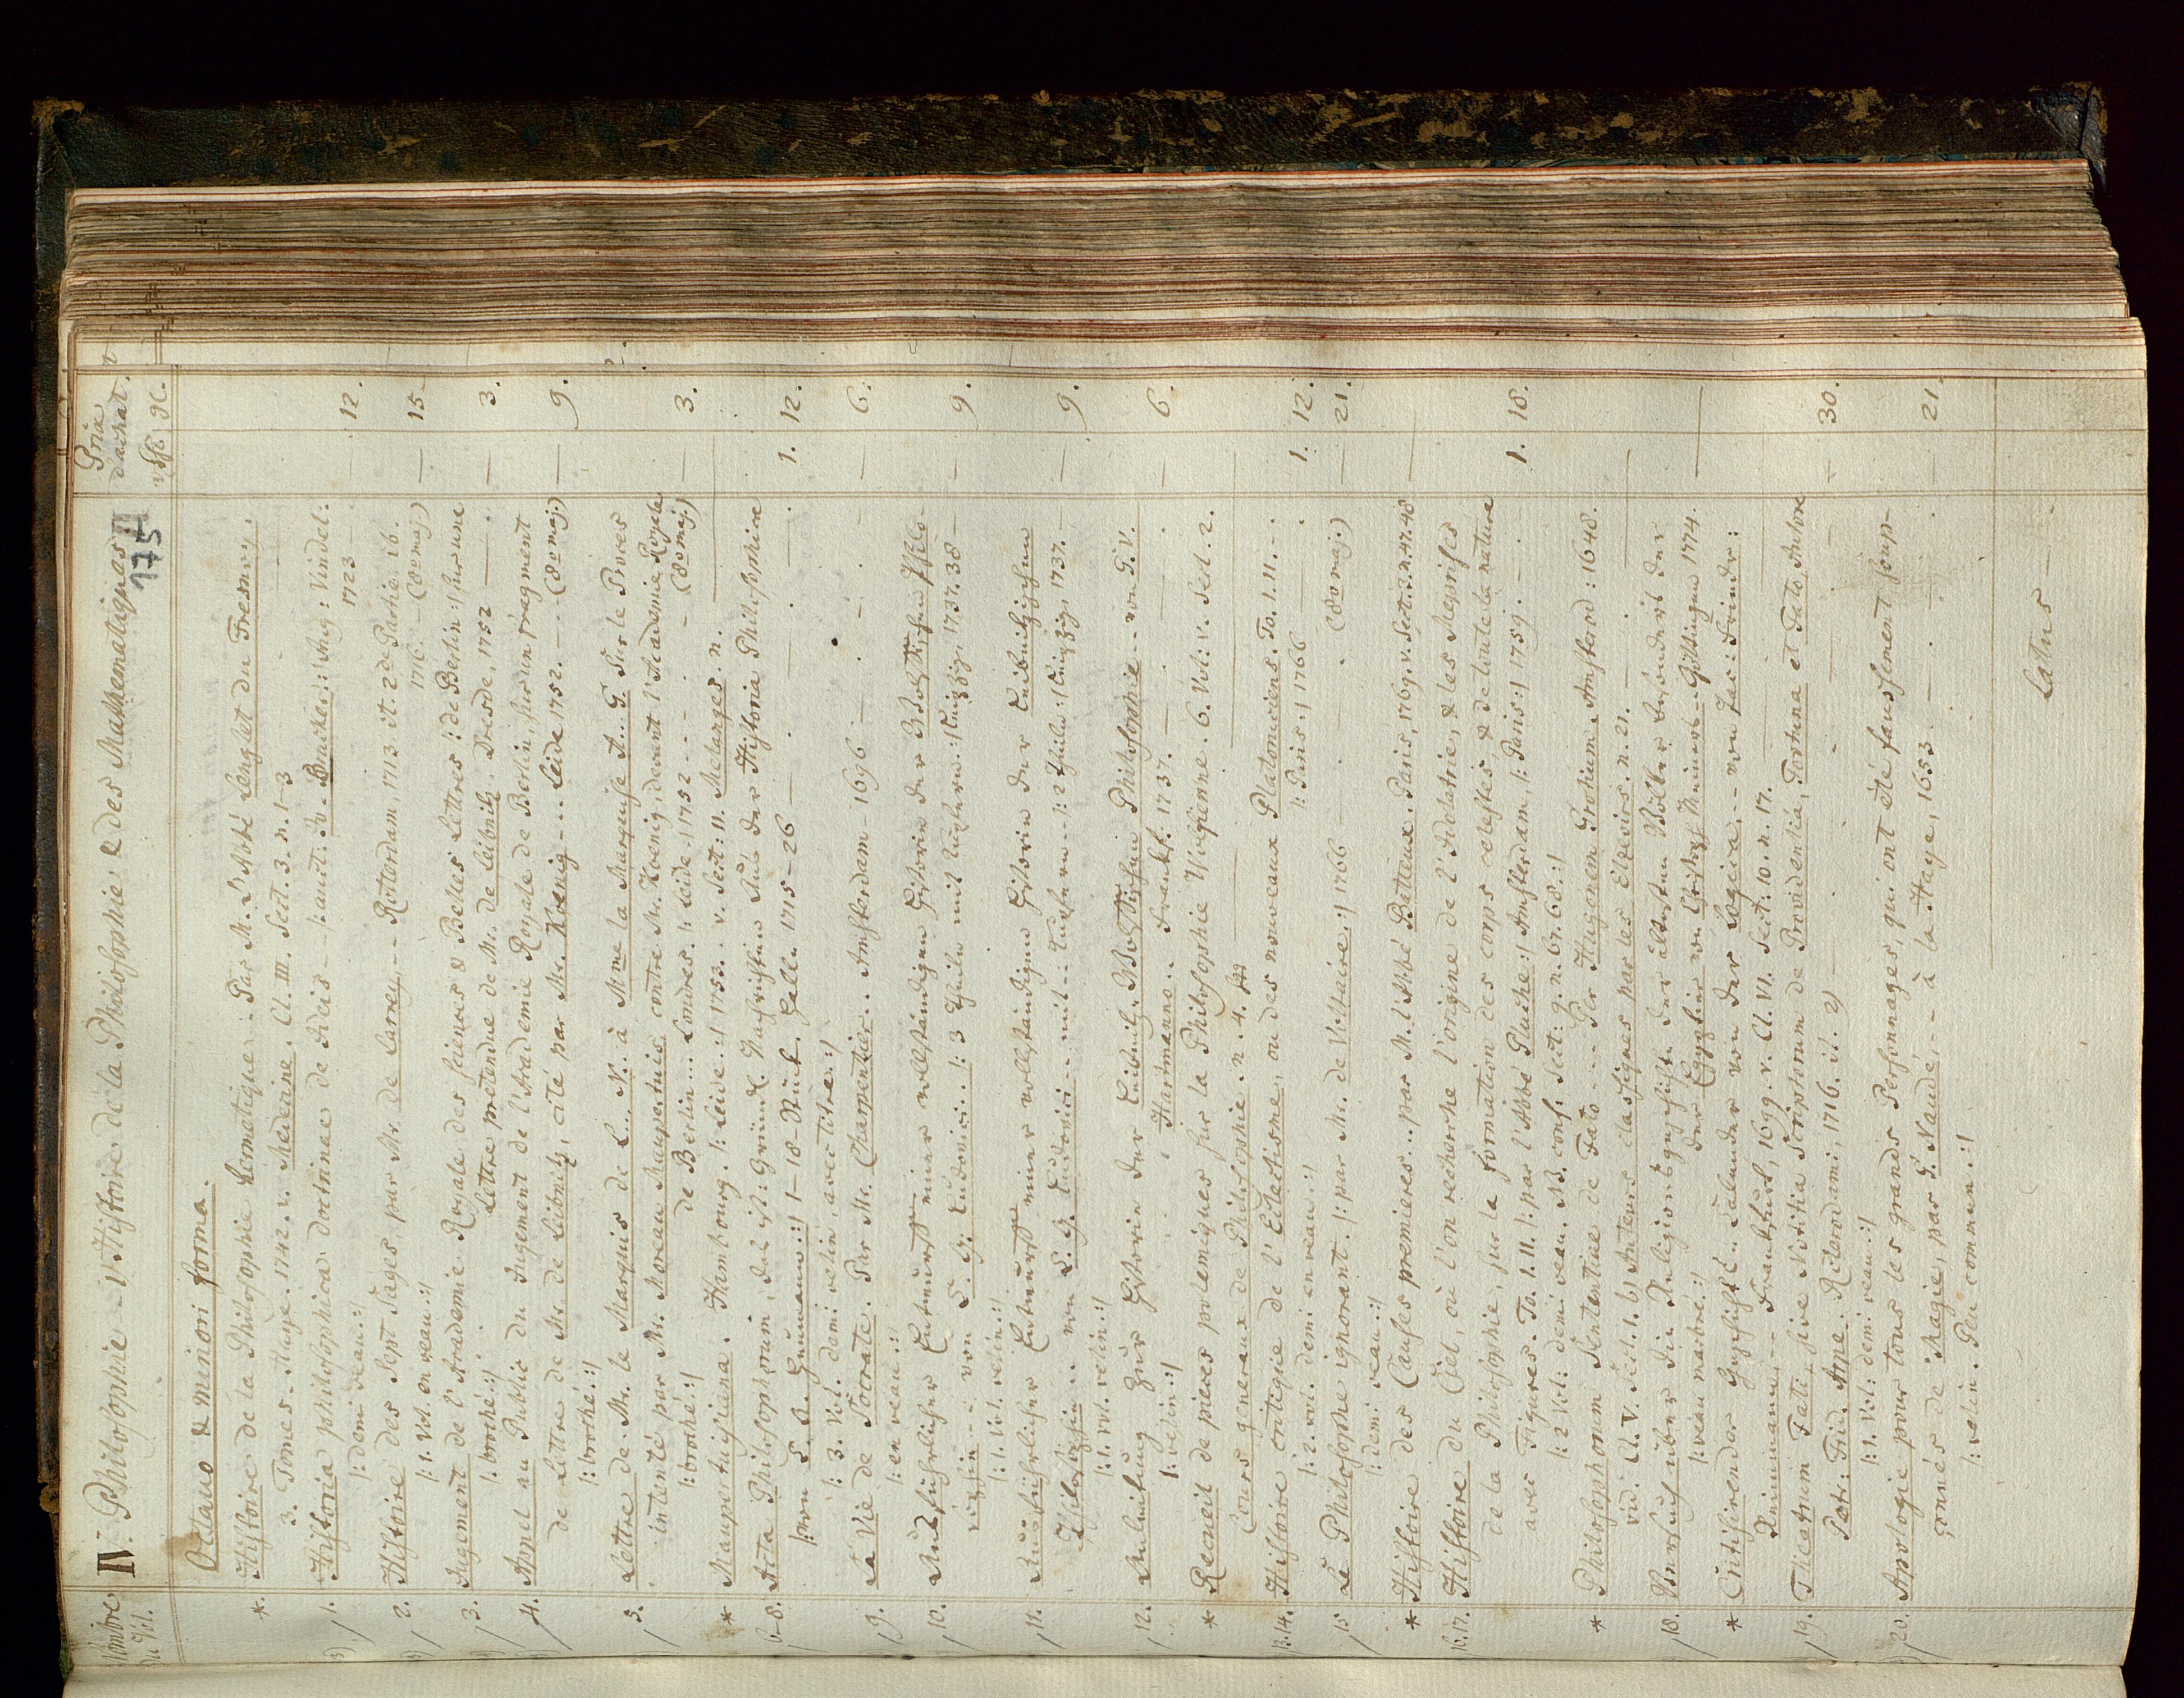 Nombre
du Vol.
IV. Philosophie – V. Histoire de la Philosophie & des Mathematiques
175
Prix
d'achat.
Octavo & minori forma.
*. Histoire de la Philosophie hermetique. - Par M. L'Abbé Lenglet du Fresnoy.
3. Tomes. - Haye. 1742. v. Medecine. Cl. III. Sect. 3. n. 1-3
1. Historia philosophica doctrinae de Ideis - /: auct. Bruckero :/ Aug: Vindel:
/: demi veau :/ 1723 — 12.
2. Histoire des Sept Sages, par Mr. de Larrey, -- Rotterdam, 1713 it. 2de Partie. ib.
/: 1. Vol. en veau :/ 1716. - (8o maj.) — 15.
3. Jugement de l'Academie Royale des sciences & Belles Lettres /: de Berlin :/ sur une
/: broché :/ Lettre pretendue de Mr. de Leibnitz. Dresde, 1752 — 3.
4. Appel au Public du Jugement de l'Academie Royale de Berlin, sur un fragment
de Lettre de Mr. de Leibnitz, cité par Mr. Koenig - .. Leide 1752. — (8o maj.) — 9.
/: broché :/
5. Lettre de Mr. le Marquis de L.. N.. à Mme la Marquise A... G. Sur le Proces
intenté par Mr. Moreau Maupertuis contre Mr. Koenig, devant l'Academie Royale
/: broché :/ de Berlin ... Londres. /: Leide :/ 1752 - - - (8o maj.) — 3.
* Maupertuisiana. Hambourg. /: Leide :/ 1753. v. Sect: 11. Melanges. n.
6-8. Acta Philosophorum, das ist: Gründl. Nachrichten aus der Historia Philosophica
/: von C. A. Heumann :/ 1-18 Stück. Halle 1715-26 — 1. 12.
/: 3. Vol. demi velin, avec titre :/
9. La Vie de Socrate. Par Mr. Charpentier .. Amsterdam - 1696 — 6.
/: en veau :/
10. Ausführlicher Entwurff einer vollständigen Historie der Wolffischen Philo-
sophie -- von C. G. Ludovici .. /: 3 Theile mit Kupfern :/ Leipzig, 1737. 38 — 9.
/: 1. Vol. velin :/
11. Ausführlicher Entwurff einer vollständigen Historie der Leibnitzischen
Philosophie .. von C. G. Ludovici .. mit .. Kupfern -- /: 2 Theile :/ Leipzig, 1737. — 9.
/: 1. vol. velin :/
12. Anleitung zur Historie der Leibnitz-Wolffischen Philosophie -- von G. V.
/: velin :/ Hartmann .. Frankf. 1737. — 6.
* Recueil de pieces polemiques sur la Philosophie Wolfienne. 6. Vol: v. Sect. 2.
Cours generaux de Philosophie. n. 4.
13.14. Histoire critique de l'Eclectisme, ou des nouveaux Platoniciens. To. I. II. --
/: 2. vol. demi en veau :/ /: Paris :/ 1766 1. 12.
15 Le Philosophe ignorant. /: par Mr. de Voltaire :/ 1766 — (8o maj.) — 21.
/: demi veau :/
* Histoire des Causes premieres .. par M. l'Abbé Batteux. Paris, 1769. v. Sect. 3. n. 47. 48
16.17. Histoire du Ciel, où l'on recherche l'origine de l'Idolatrie, & les Meprises
de la Philosophie, sur la formation des corps celestes, & de toute la nature
avec Figures. To. I. II. /: par l'Abbé Pluche :/ Amsterdam, /: Paris :/ 1759. — 1. 18.
/: 2 Vol: demi veau. NB. conf: Sect: 9. n. 67. 68. :/
* Philosophorum Sententiae de Fato --- Per Hugonem Grotium. Amsterod: 1648.
vid. Cl. V. Sect. 1. b) Auteurs classiques par les Elzevirs. n. 21.
18. Versuch über die Religionsgeschichte der ältesten Völker besonders der
/: veau marbré :/ der Egyptier von Christoph Meiners -- Göttingen 1774.
* Curiöser Geschichts-Calender von der Logica -- von Jac: Frider:
Reimmann -- Frankfurt, 1699. v. Cl. VI. Sect: 10. n. 17.
19. Theatrum Fati, sive Notitia Scriptorum de Providentia, Fortuna et Fato, Autore
Petr: Frid. Arpe. Roterodami, 1716. — 30.
/: 1. Vol: demi veau :/
20. Apologie pour tous les grands Personnages, qui ont été faussement soup-
çonnés de Magie, par G. Naudé, -- à la Haye, 1653 — 21.
/: velin. Peu commun :/
Latus —